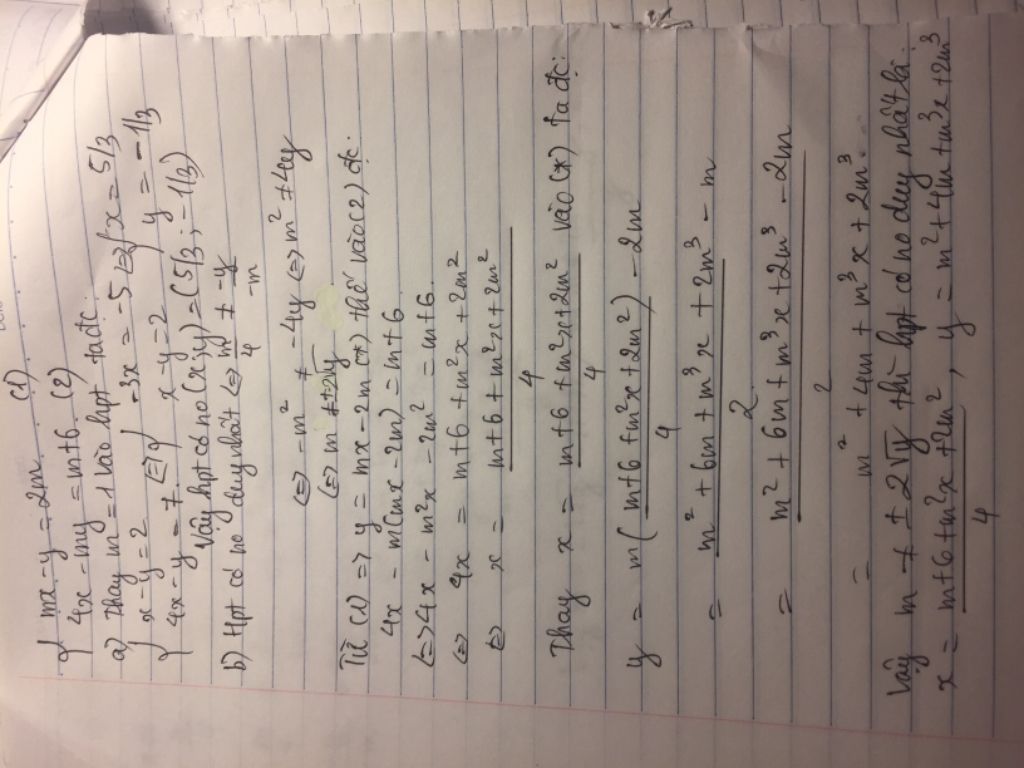 { mx - y = 2m (1)
4x - my = m+6 (2)
a) Thay m = 1 vào hpt ta đc
{ x - y = 2
4x - y = 7 <=> { -3x = -5 x - y = 2 <=> { x = 5/3 y = -1/3
Vậy hpt có no (x; y) = (5/3; -1/3)
b) Hpt có no duy nhất <=> m/4 ≠ -y/-m
<=> -m² ≠ -4y <=> m² ≠ 4y
<=> m ≠ ±2√y
Từ (1) => y = mx - 2m (*) thế vào (2) đc:
4x - m(mx - 2m) = m+6
<=> 4x - m²x - 2m² = m+6.
<=> 4x = m+6 + m²x + 2m²
<=> x = m+6 + m²x + 2m² / 4
Thay x = m+6 + m²x + 2m² / 4 vào (*) ta đc:
y = m( m+6 + m²x + 2m² / 4 ) - 2m
= m² + 6m + m³x + 2m³ / 2 - m
= m² + 6m + m³x + 2m³ - 2m / 2
= m² + 4m + m³x + 2m³.
Vậy m ≠ ±2√y thì hpt có no duy nhất là:
x = m+6 + m²x + 2m² / 4 , y = m² + 4m + m³x + 2m³